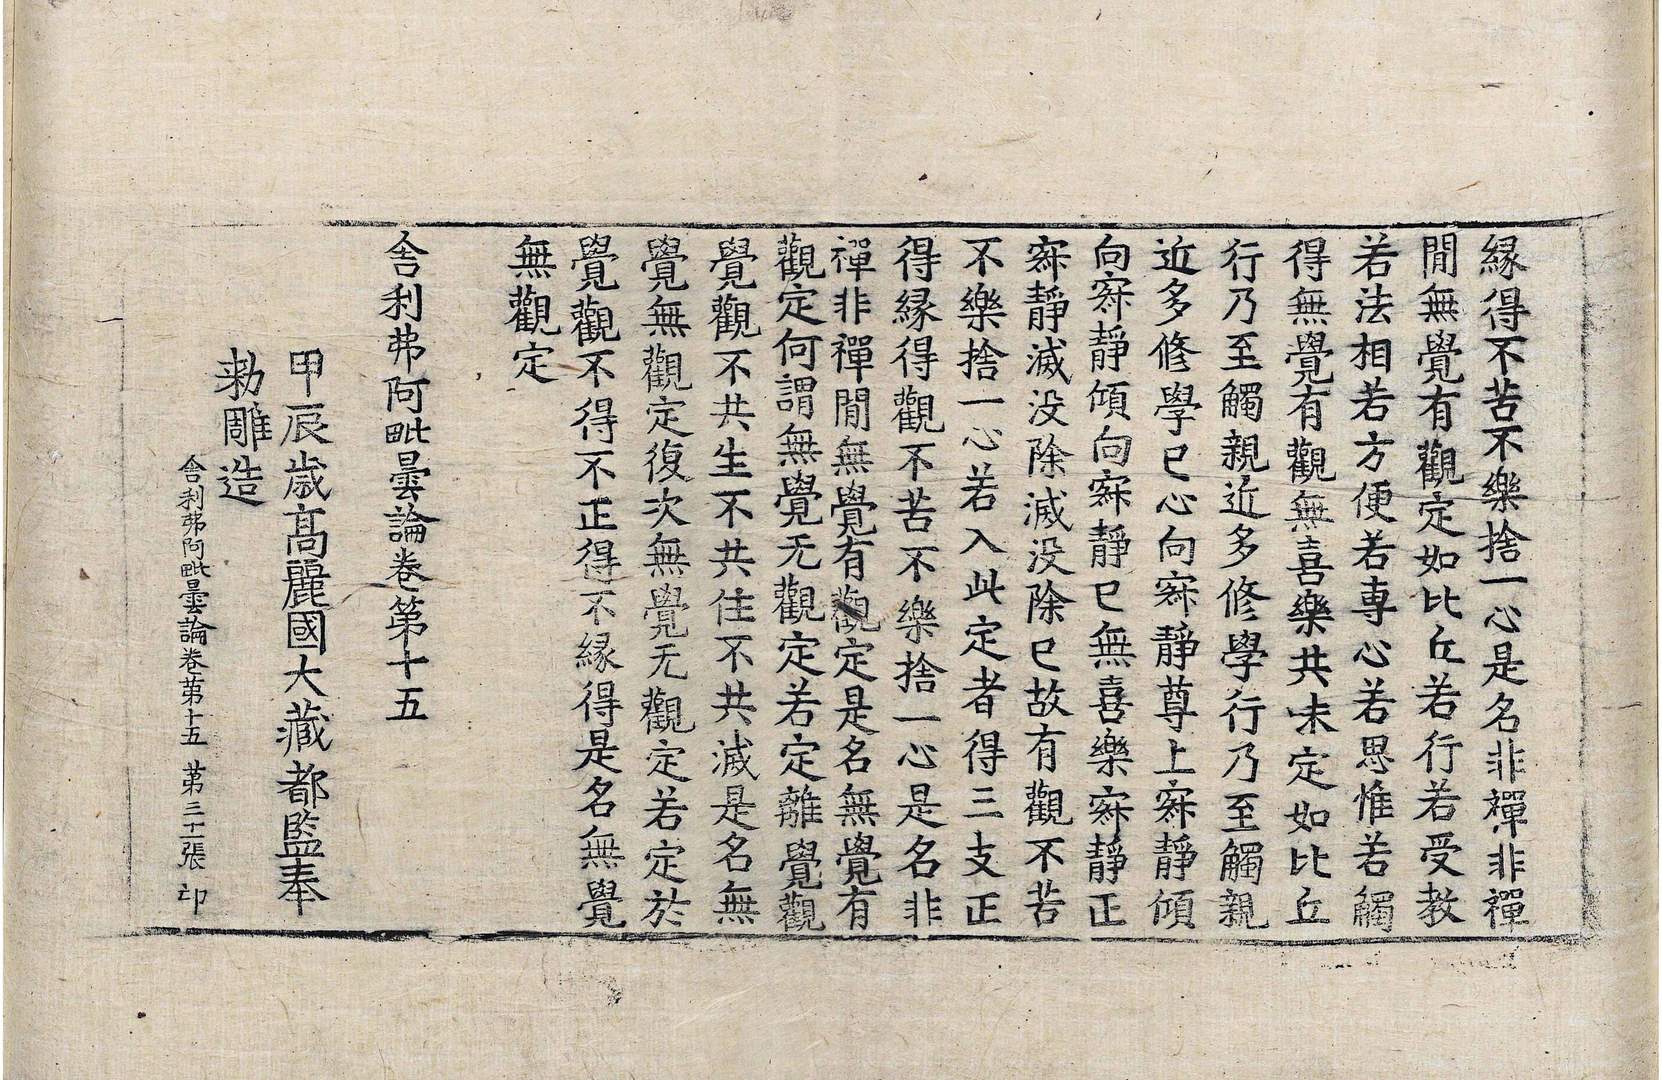 縁得不苦不樂捨一心是名非禪非禪
閒無覺有觀定如比丘若行若受教
若法相若方便若専心若思惟若觸
得無覺有觀無喜樂共未定如比丘
行乃至觸親近多修學行乃至觸親
近多修學已心向寂靜尊上寂靜傾
向寂靜傾向寂靜已無喜樂寂靜正
寂靜滅没除滅没除已故有觀不苦
不樂捨一心若入此定者得三支正
得縁得觀不苦不樂捨一心是名非
禪非禪閒無覺有觀定是名無覺有
觀定何謂無覺无觀定若定離覺觀
覺觀不共生不共住不共滅是名無
覺無觀定復次無覺无觀定若定於
覺觀不得不正得不縁得是名無覺
無觀定
舍利弗阿毗曇論卷第十五
甲辰歲髙麗國大藏都監奉
勅雕造
舍利弗阿毗曇論卷第十五 第三十張 印